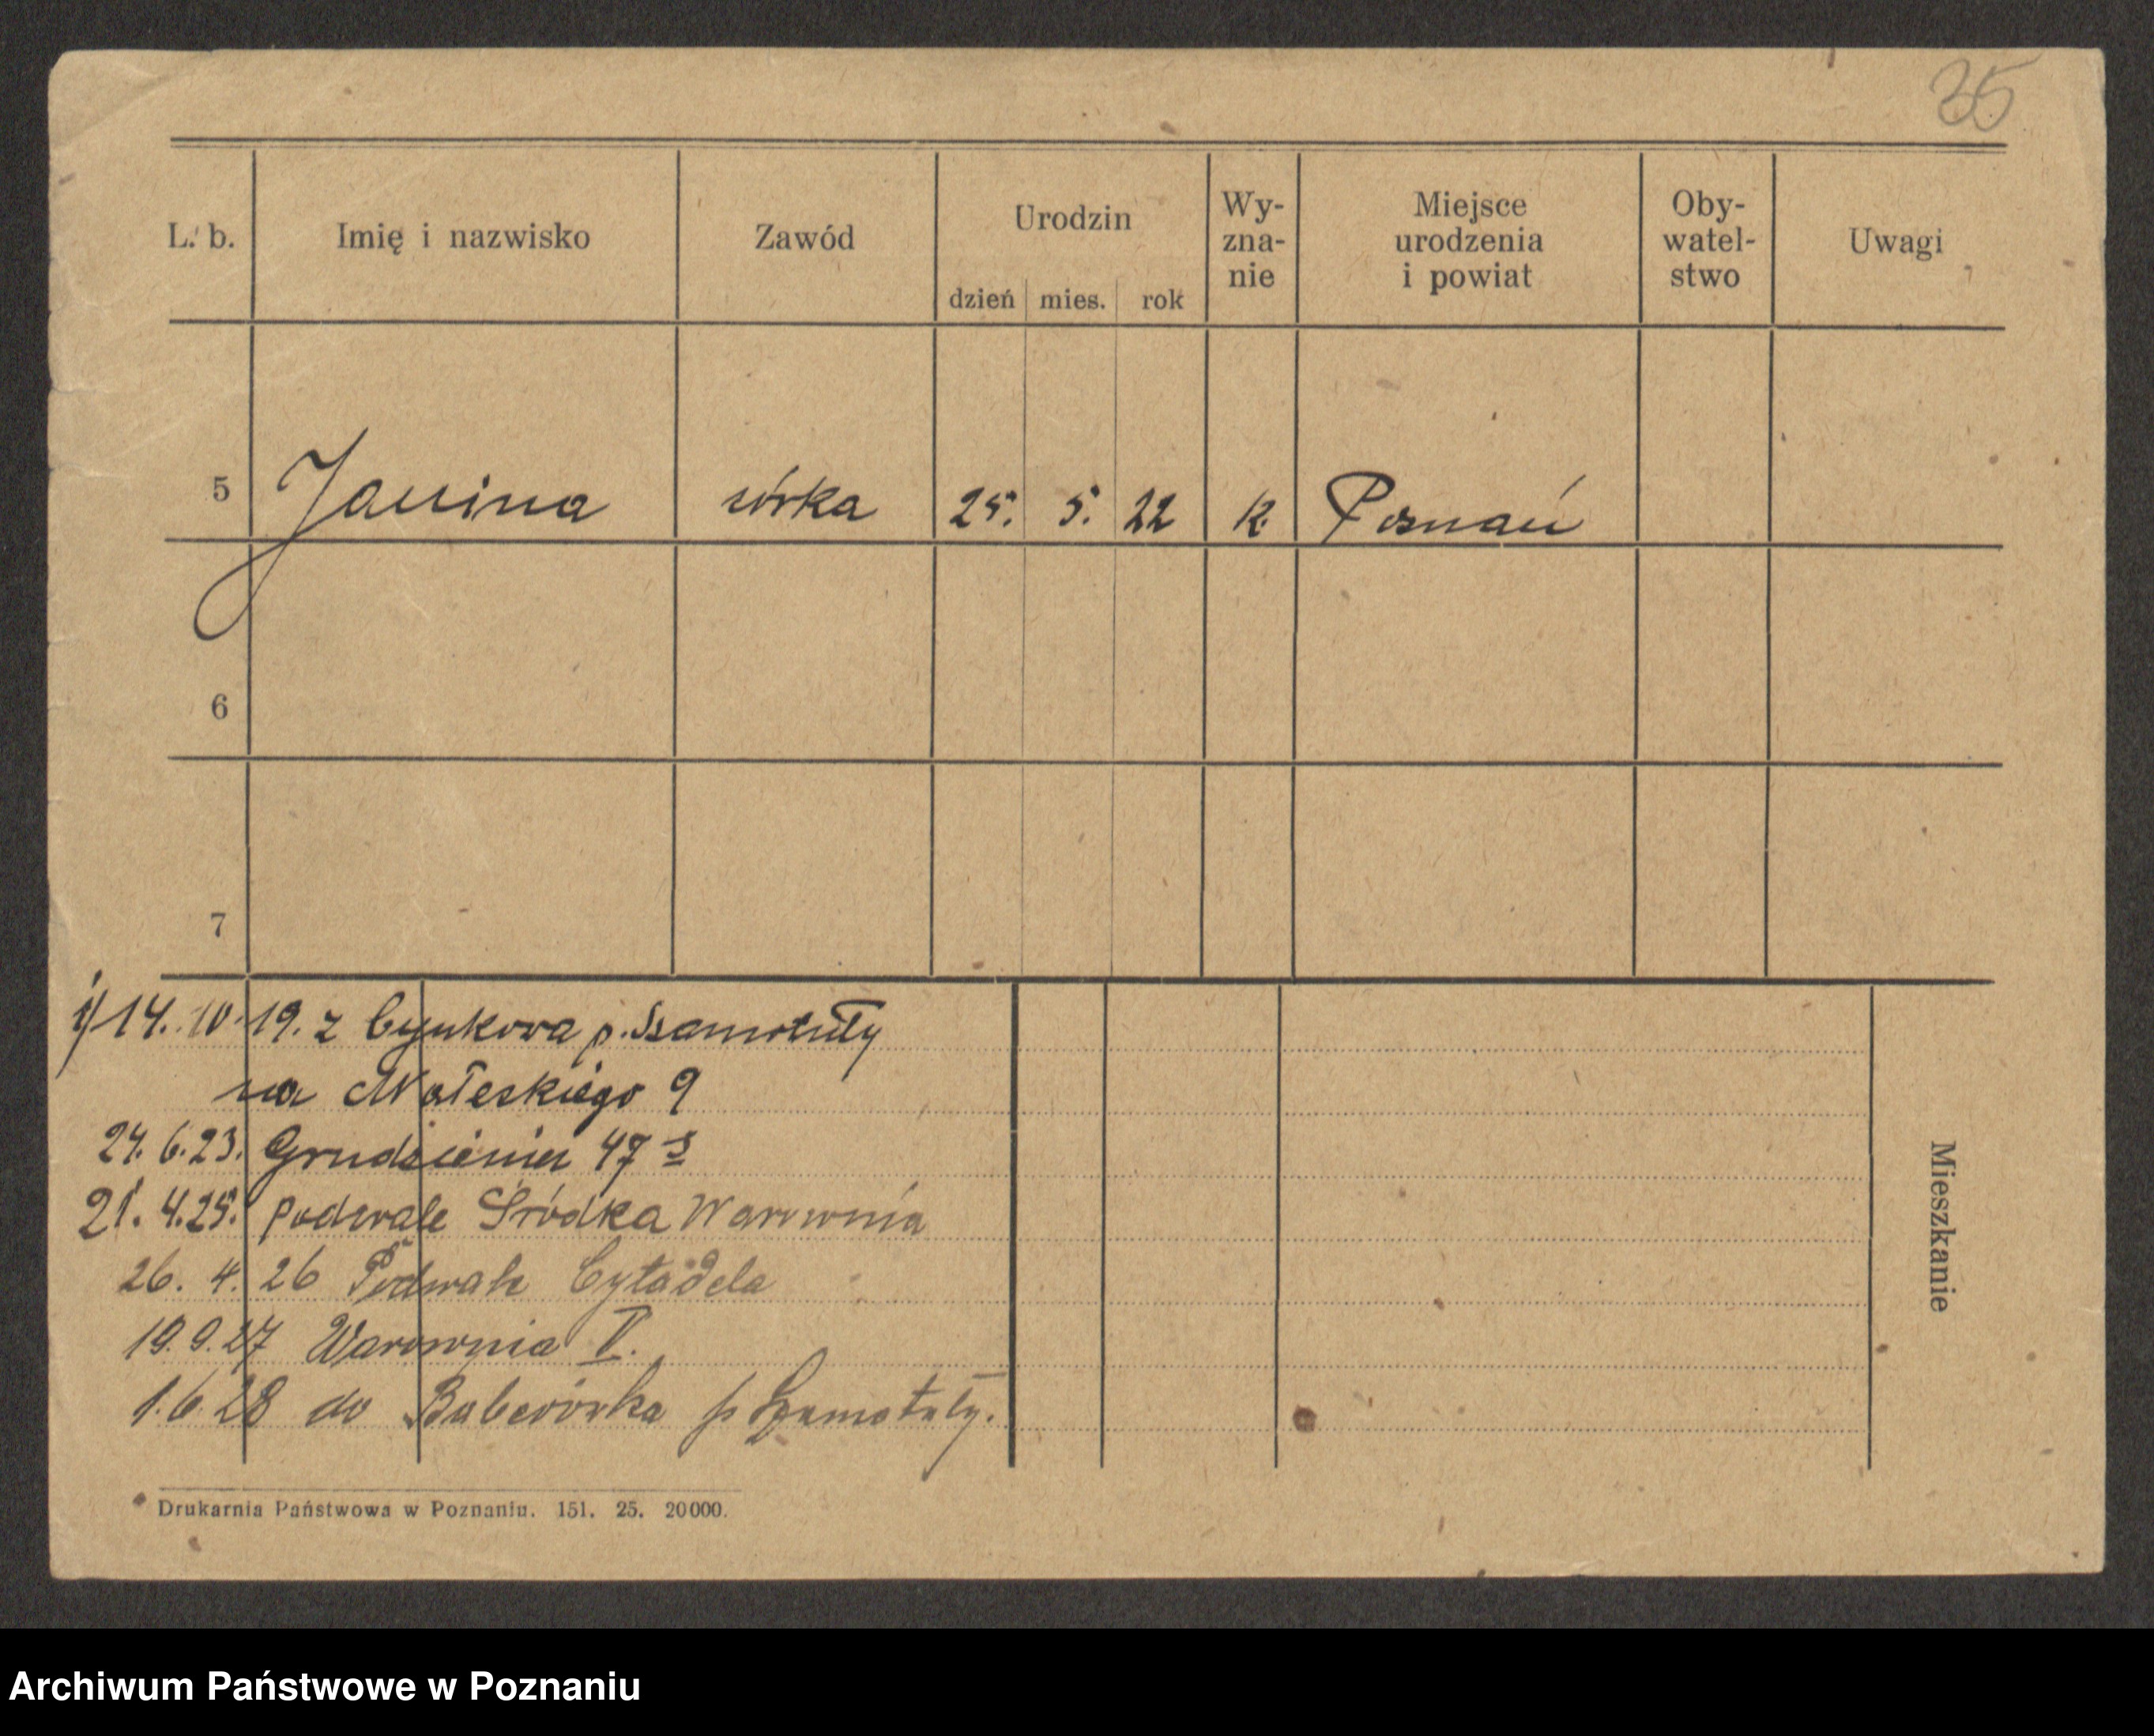 35
L. b. Imię i nazwisko Zawód Urodzin dzień mies. rok Wy-zna-nie Miejsce urodzenia i powiat Oby-watel-stwo Uwagi
5 Janina córka 25. 5. 22 k. Poznań
6
7
1/ 14. 10. 19. z p. Szamotuły
na Małeckiego 9
24. 6. 23. Grudzieniec 47
21. 4. 25. Podwale Śródka Warownia
26. 4. 26 Podwale Cytadela
19. 9. 27 Warownia V.
1. 6. 28 do Baborówka p Szamotuły.
Mieszkanie
Drukarnia Państwowa w Poznaniu. 151. 25. 20000.
Archiwum Państwowe w Poznaniu